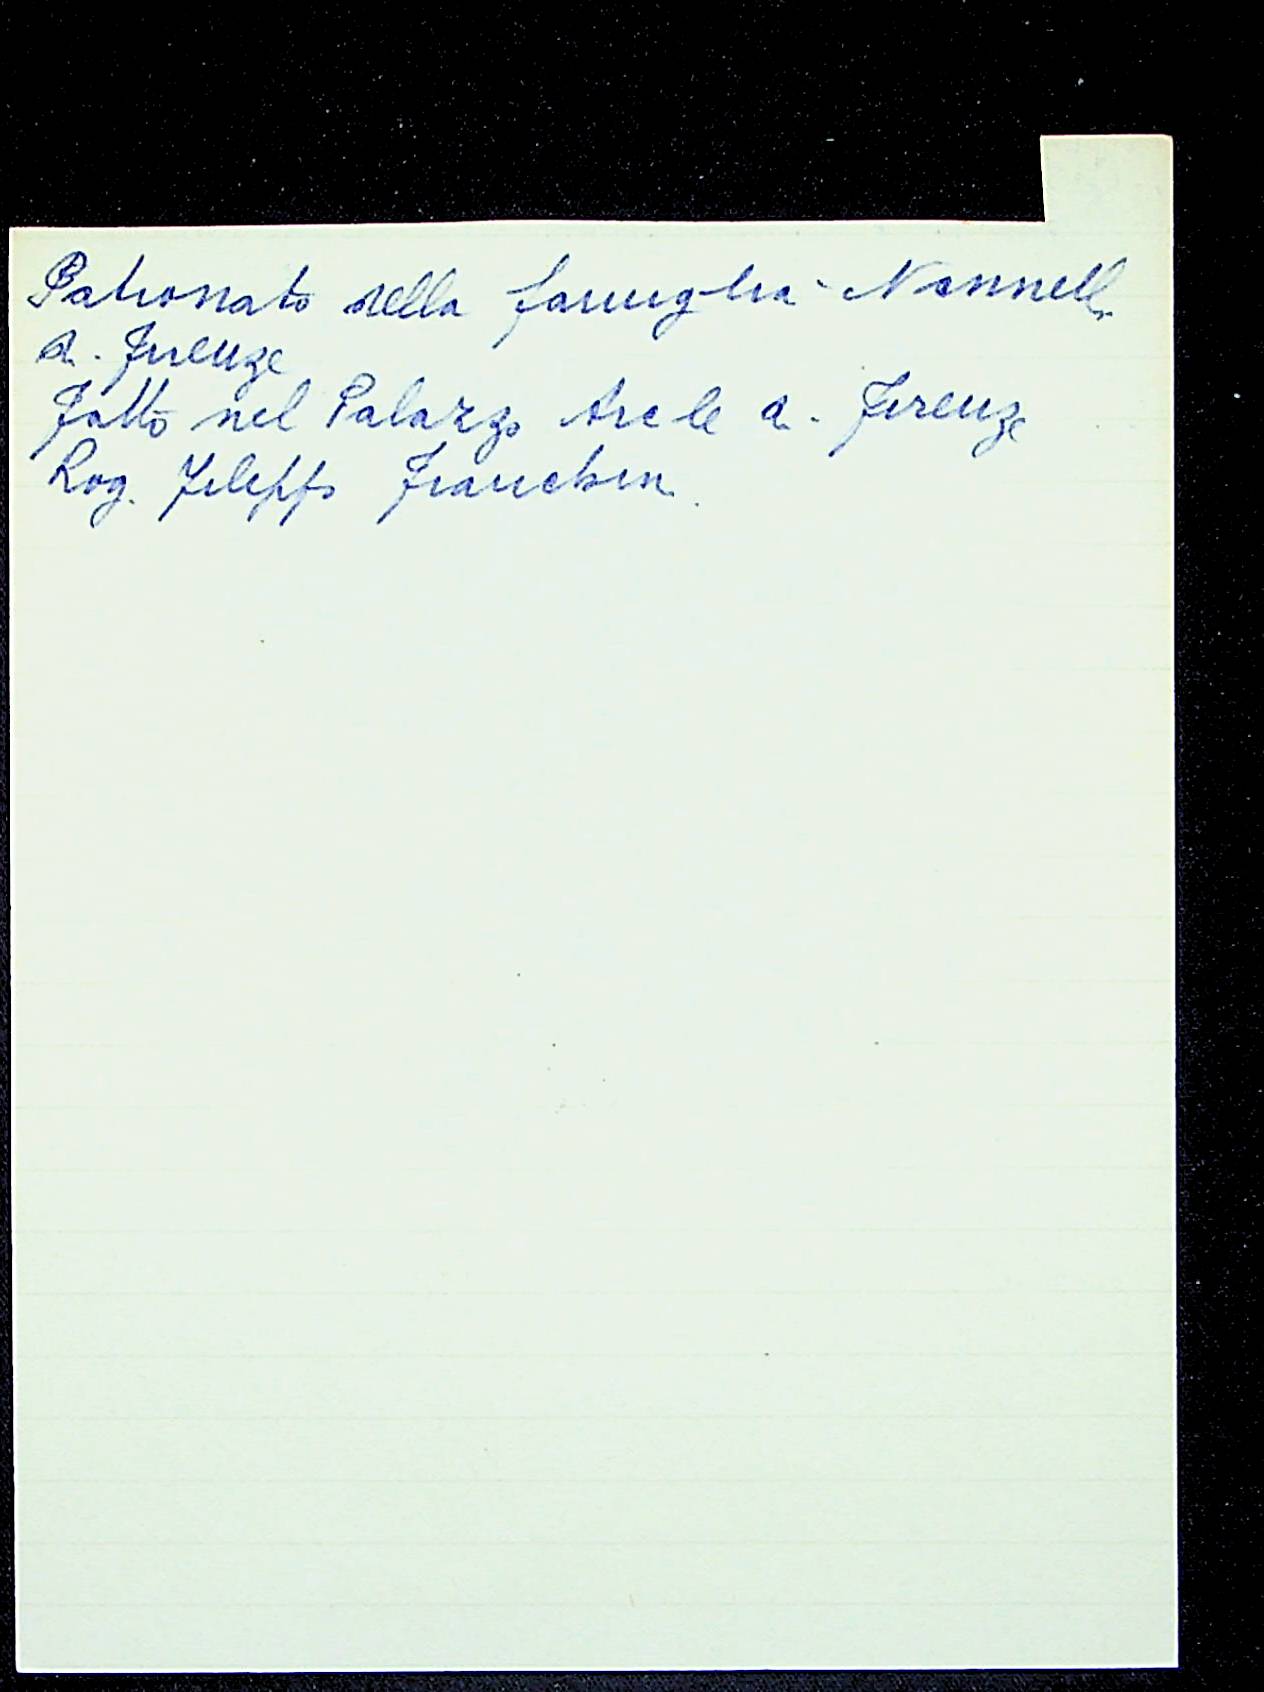 Patronato della famiglia Nannelli
a Firenze
Fatto nel Palazzo Arcle a Firenze
Rog. Filippo Franchin